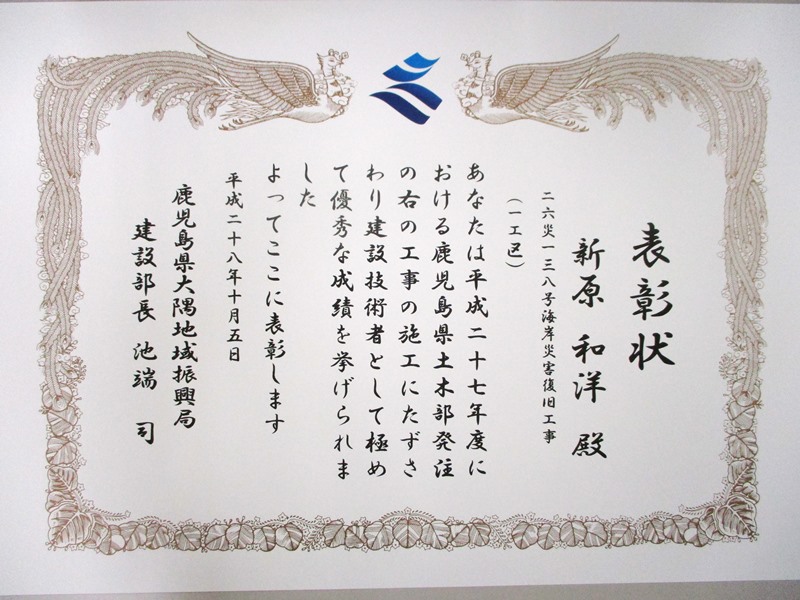 表彰状
新原 和洋 殿
二六災一三八号海岸災害復旧工事
（一工区）
あなたは平成二十七年度に
おける鹿児島県土木部発注
の右の工事の施工にたずさ
わり建設技術者として極め
て優秀な成績を挙げられま
した
よってここに表彰します
平成二十八年十月五日
鹿児島県大隅地域振興局
建設部長 池端 司